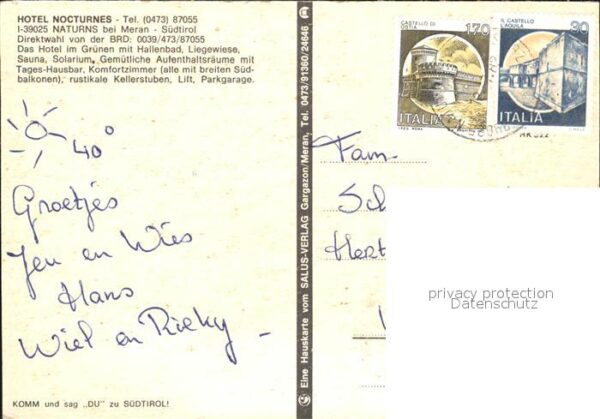 HOTEL NOCTURNES - Tel. (0473) 87055
I-39025 NATURNS bei Meran - Südtirol
Direktwahl von der BRD: 0039/473/87055
Das Hotel im Grünen mit Hallenbad, Liegewiese,
Sauna, Solarium, Gemütliche Aufenthaltsräume mit
Tages-Hausbar, Komfortzimmer (alle mit breiten Süd-
balkonen), rustikale Kellerstuben, Lift, Parkgarage.
40°
Groetjes
Jeu en Wies
Hans
Wiel en Rieky
KOMM und sag „DU" zu SÜDTIROL!
Eine Hauskarte vom SALUS-VERLAG Gargazon/Meran, Tel. 0473/91360/24646
CASTELLO DI
OSTIA
170
ITALIA
IL CASTELLO
L'AQUILA
30
ITALIA
Fam.
Sch
Hert
privacy protection
Datenschutz